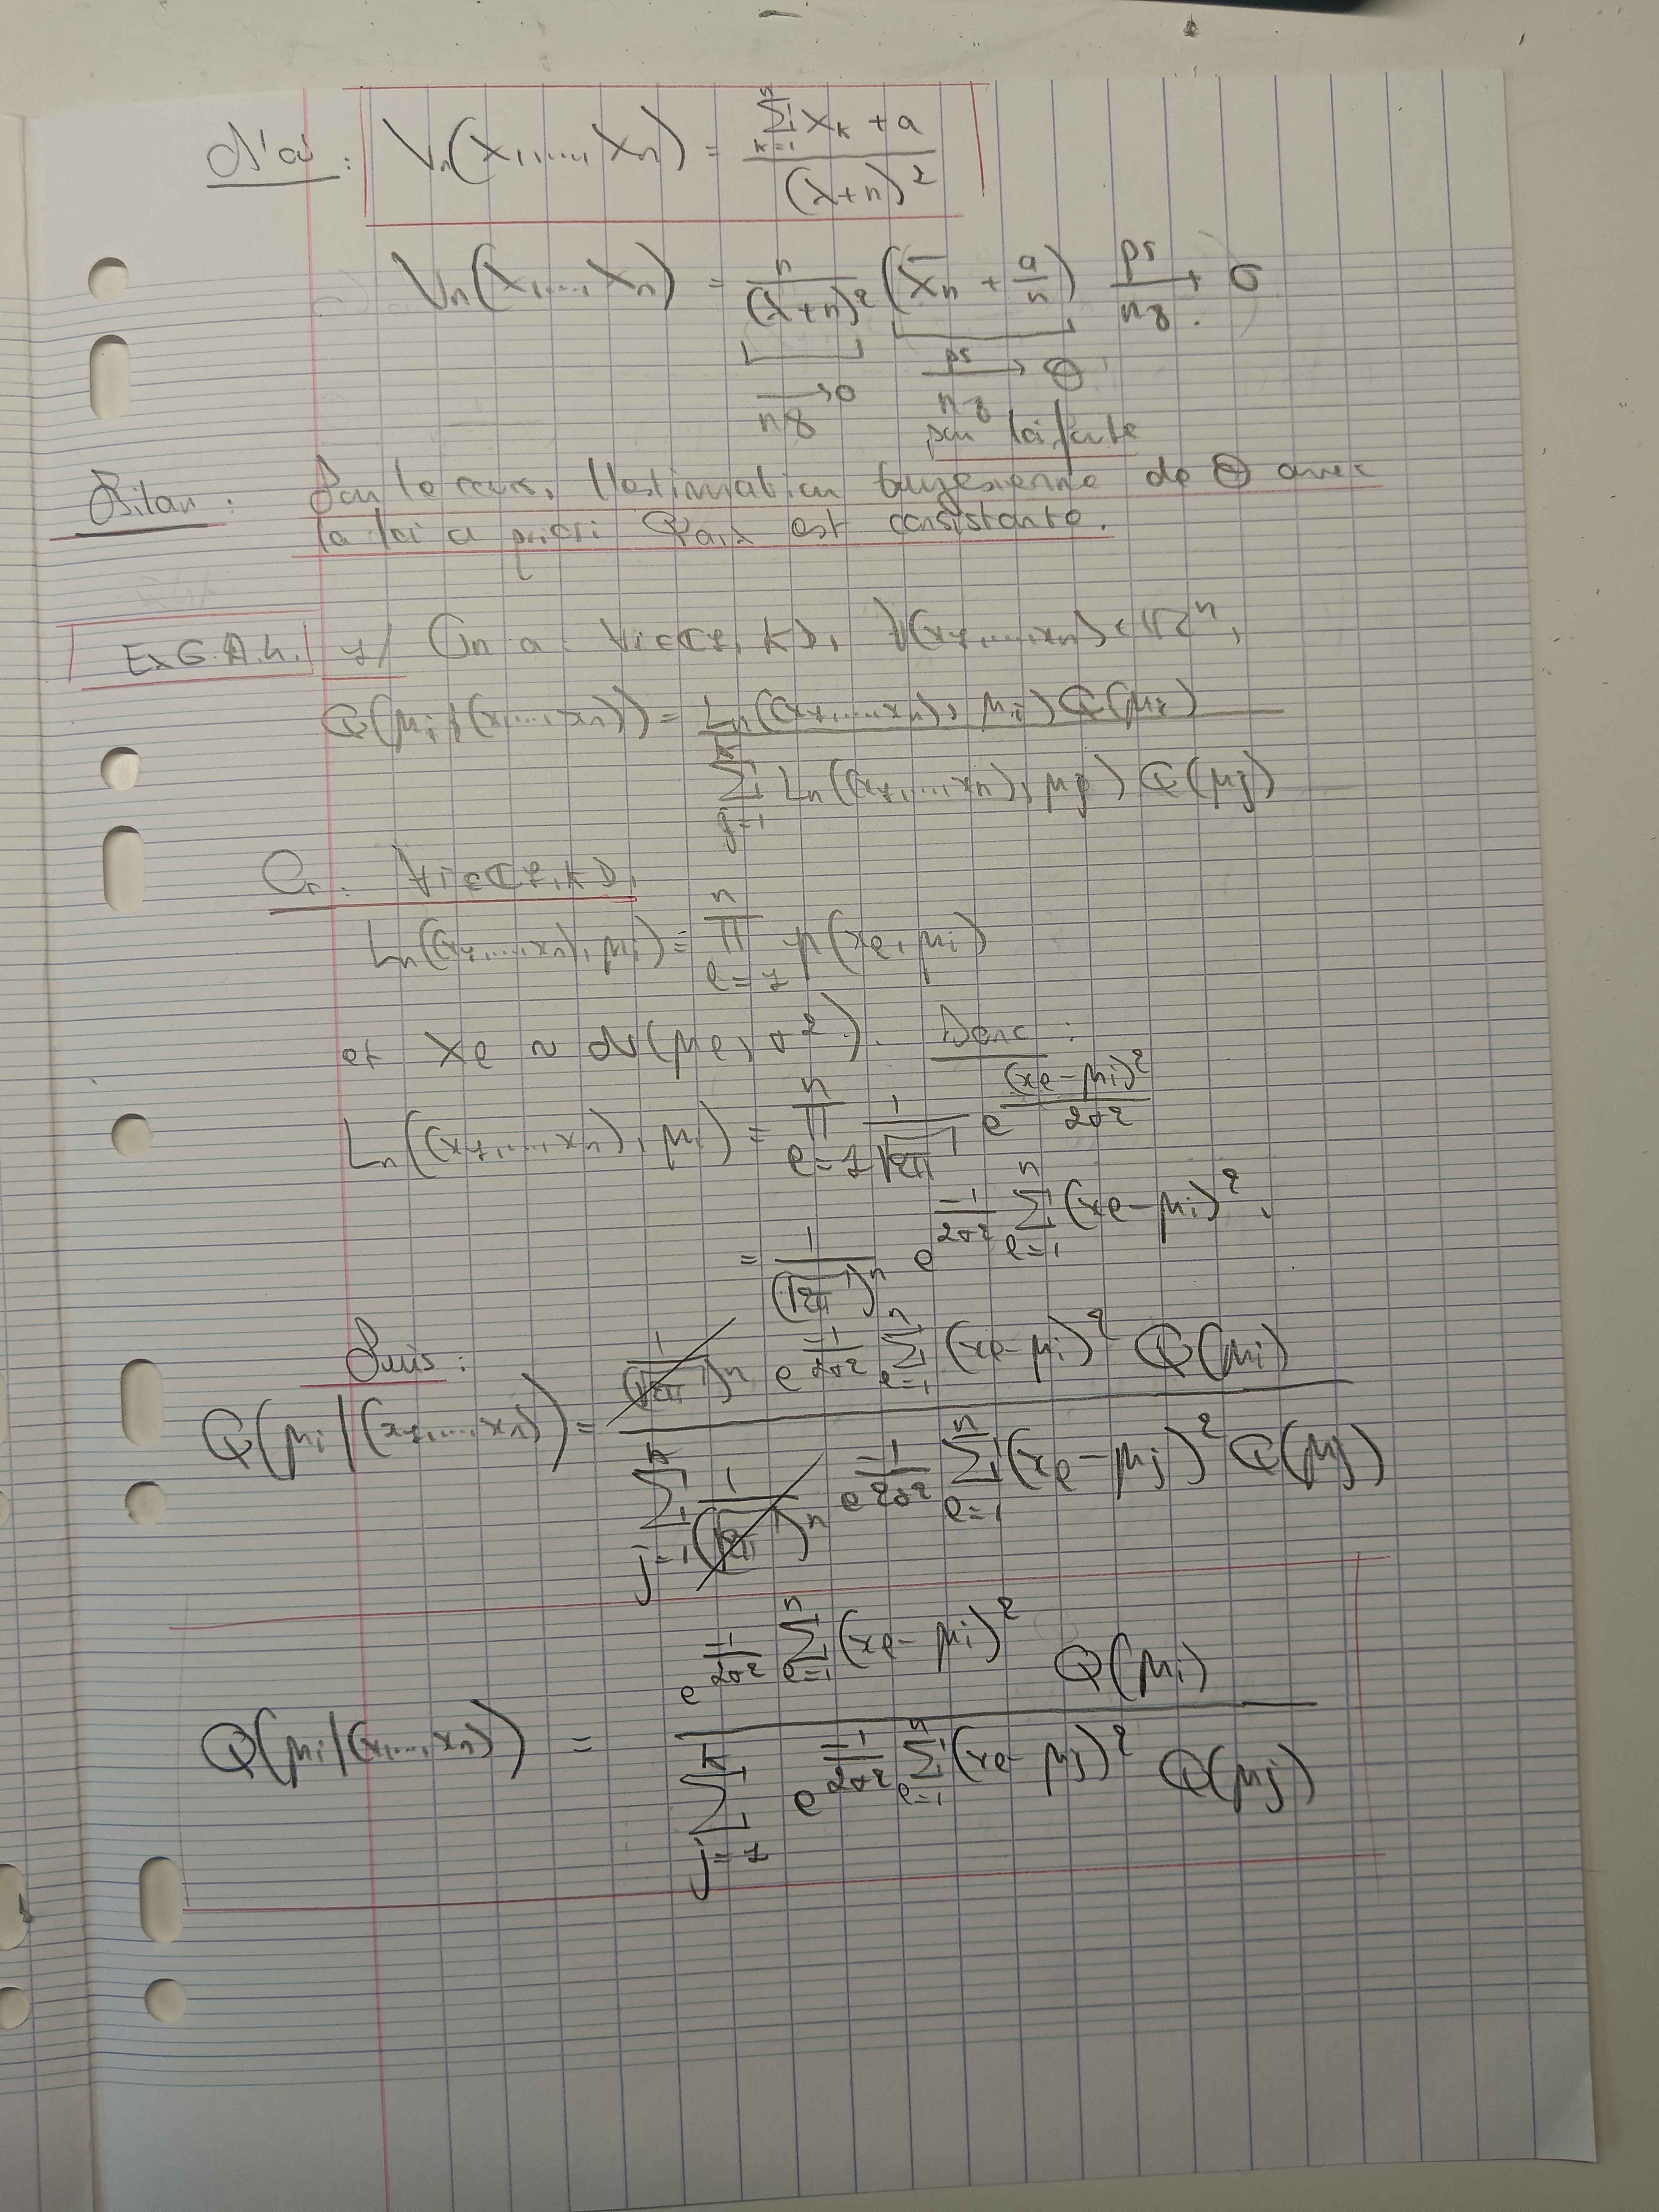 D'où : Vn(X1,...,Xn) = (∑_{k=1}^{n} Xk + a) / (λ+n)²
Vn(X1,...,Xn) = n/(λ+n)² (X̄n + a/n) ps→ n∞ 0
→0 n∞   ps→ θ n∞
par loi forte
Bilan : Par le cours, l'estimation bayesienne de θ avec
la loi a priori Qa,λ est consistante.
Ex G.A.4. 1/ On a : ∀i∈⟦1,k⟧, ∀(x1,...,xn)∈ℝⁿ,
Q(μi|(x1,...,xn)) = Ln((x1,...,xn), μi) Q(μi) / ∑_{j=1}^{k} Ln((x1,...,xn), μj) Q(μj)
Or : ∀i∈⟦1,k⟧,
Ln((x1,...,xn), μi) = ∏_{l=1}^{n} p(xl, μi)
et Xl ~ N(μl, σ²). Donc :
Ln((x1,...,xn), μi) = ∏_{l=1}^{n} 1/√2π e^{(xl-μi)²/2σ²}
= 1/(√2π)ⁿ e^{-1/2σ² ∑_{l=1}^{n} (xl-μi)²}.
Puis :
Q(μi|(x1,...,xn)) = 1/(√2π)ⁿ e^{-1/2σ² ∑_{l=1}^{n} (xl-μi)²} Q(μi) / ∑_{j=1}^{k} 1/(√2π)ⁿ e^{-1/2σ² ∑_{l=1}^{n} (xl-μj)²} Q(μj)
Q(μi|(x1,...,xn)) = e^{-1/2σ² ∑_{l=1}^{n} (xl-μi)²} Q(μi) / ∑_{j=1}^{k} e^{-1/2σ² ∑_{l=1}^{n} (xl-μj)²} Q(μj)